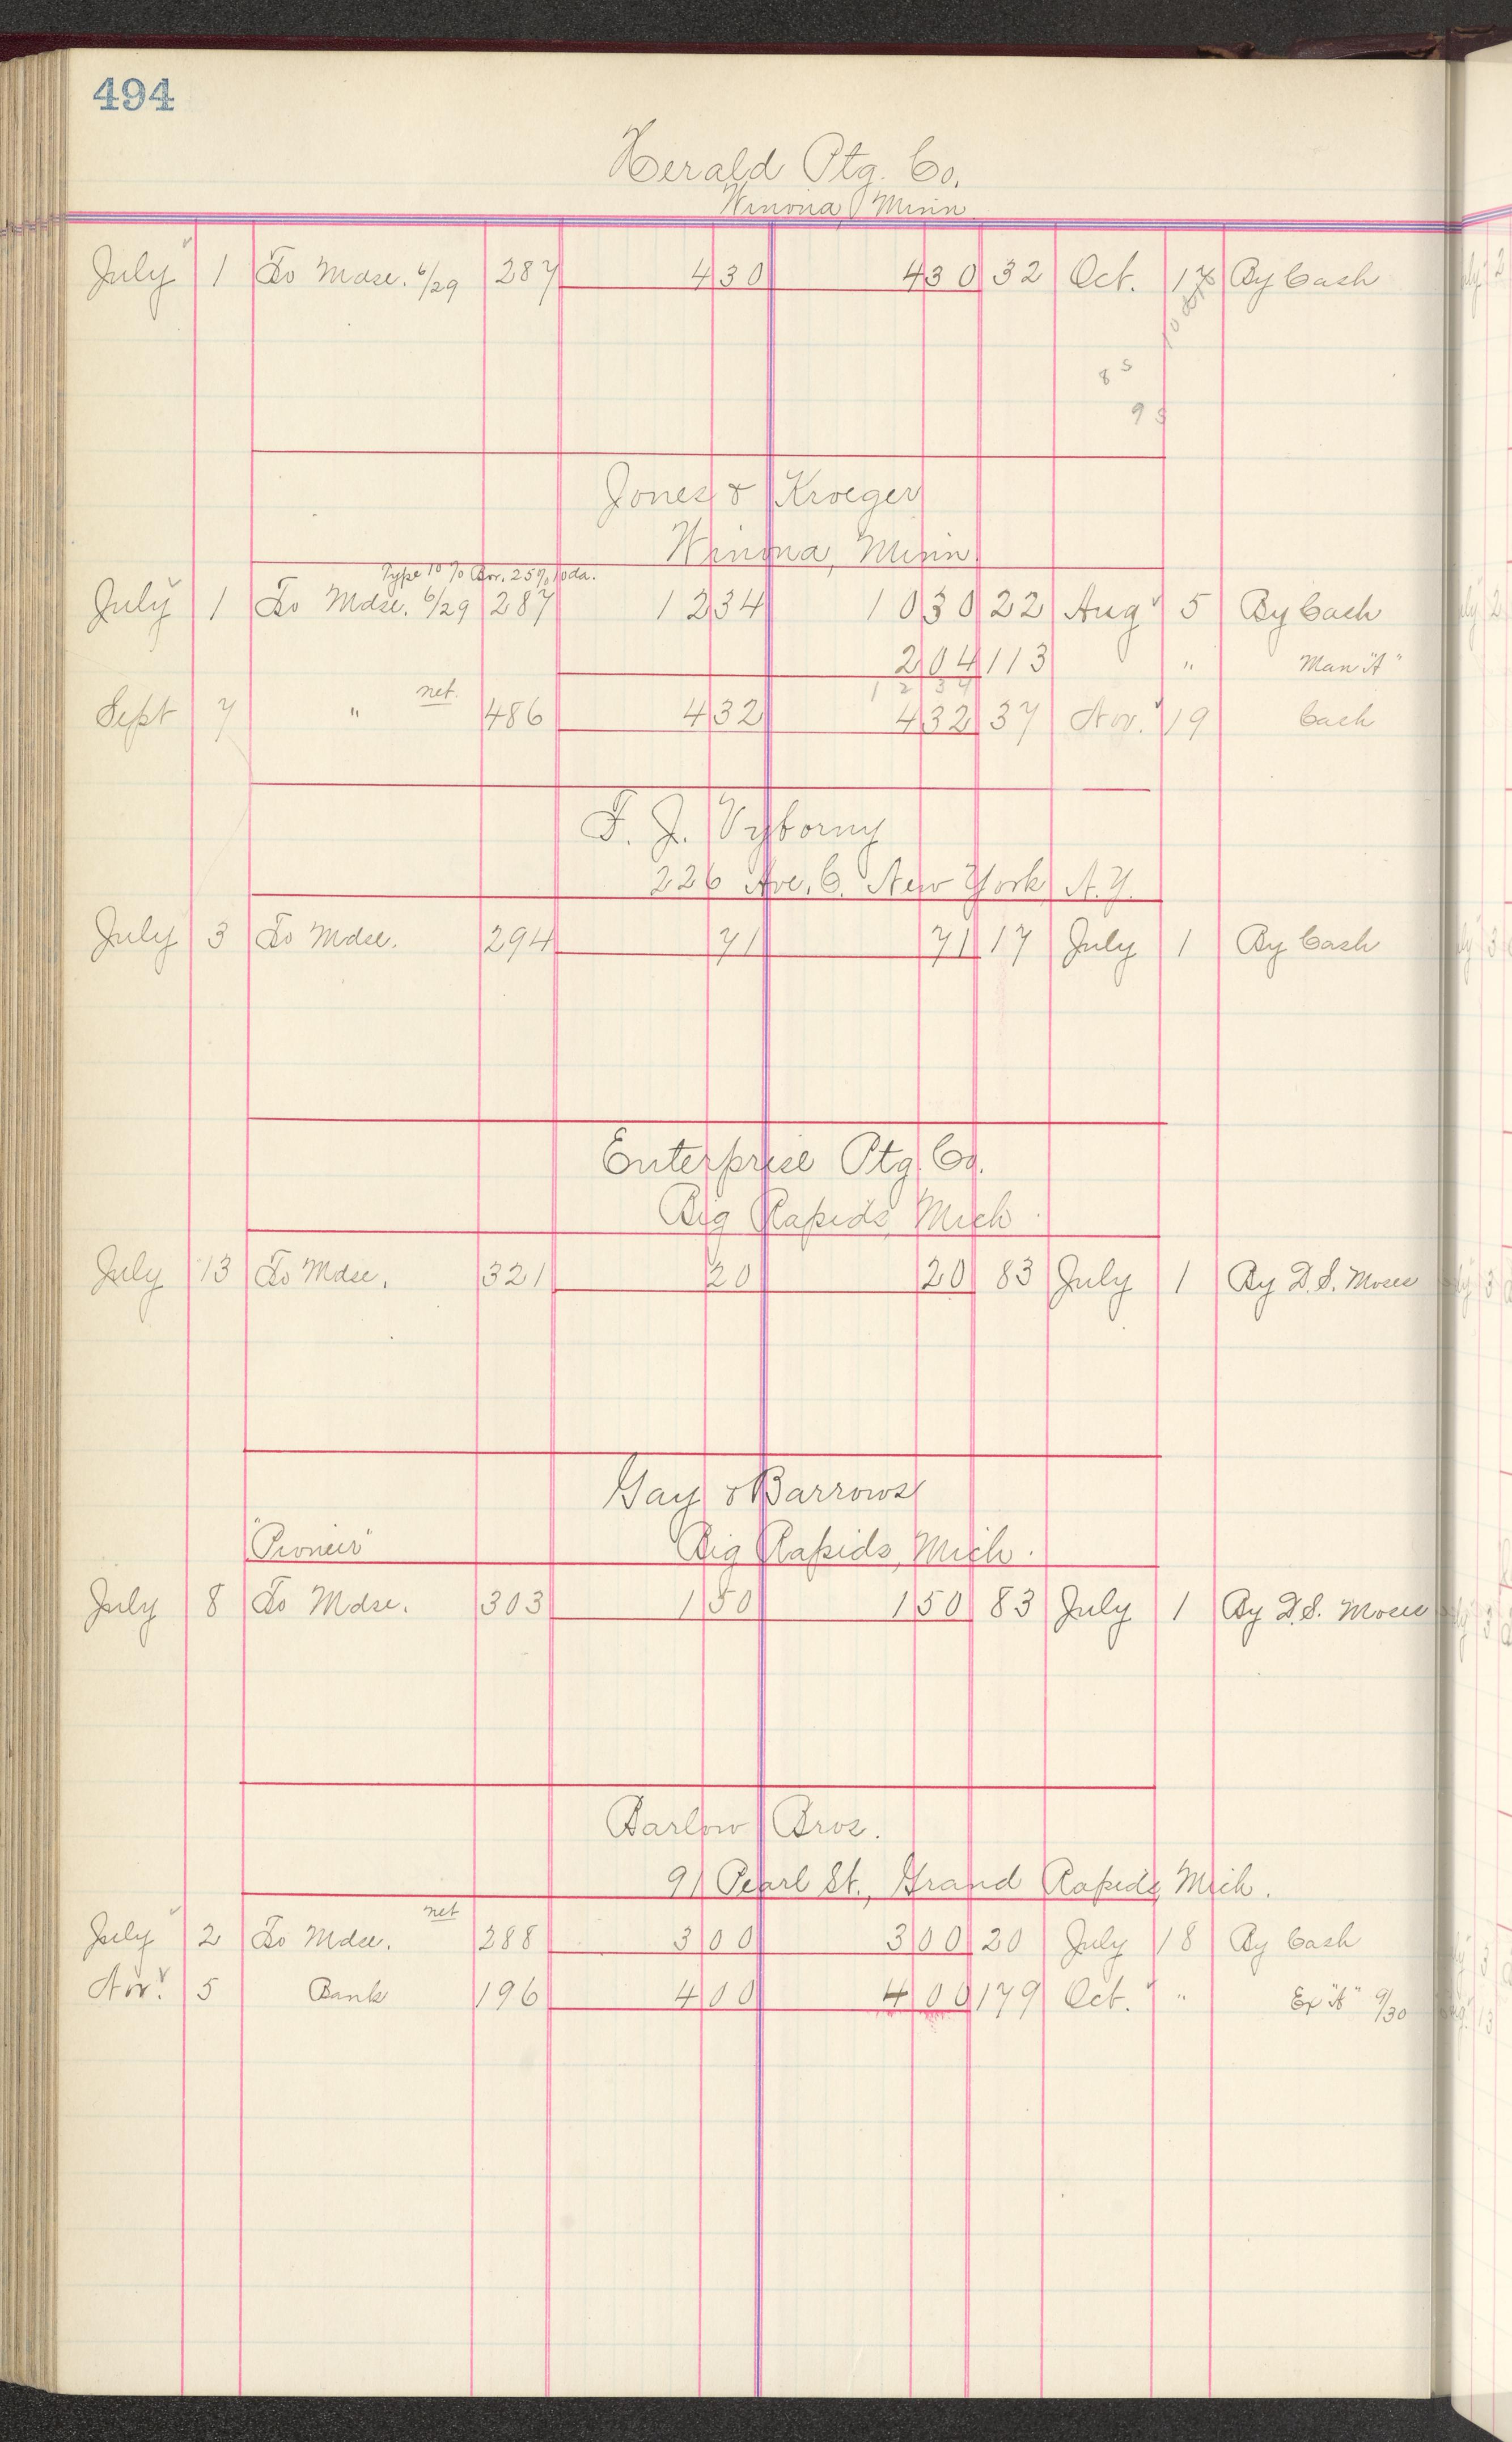 494
Herald Ptg. Co.
Winona Minn
July 1 To Mdse. 6/29 287 4 30 4 30 32 Oct. 17 By Cash
8 5
9 5
Jones & Kroeger
Winona, Minn.
Type 10% Bor. 25% 10 da.
July 1 To Mdse. 6/29 287 12 34 10 30 22 Aug 5 By Cash
2 04 113 " Man "A"
1 2 3 4
Sept 7 " net. 486 4 32 4 32 37 Nov. 19 Cash
F. J. Vyborny
226 Ave. C. New York, N.Y.
July 3 To Mdse. 294 71 71 17 July 1 By Cash
Enterprise Ptg. Co.
Big Rapids, Mich.
July 13 To Mdse. 321 20 20 83 July 1 By D.S. Moses
Gay & Barrows
"Pioneer" Big Rapids, Mich.
July 8 To Mdse. 303 1 50 1 50 83 July 1 By D.S. Moses
Barlow Bros.
91 Pearl St., Grand Rapids, Mich.
July 2 To Mdse. net 288 3 00 3 00 20 July 18 By Cash
Nov. 5 Bank 196 4 00 4 00 179 Oct. " Ex "A" 9/30